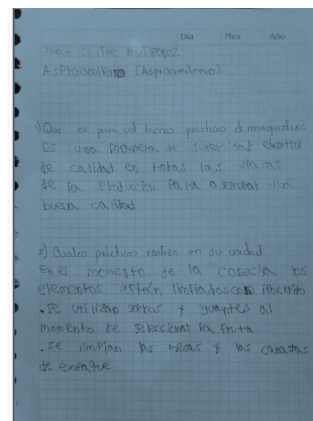 Día Mes Año
Juan Carlos
Asproamilenio (Asproamilenio)
1) Que es para ud buenas practicas de
Es una manera de el control
de calidad en todas las etapas
de la Producción Para asegurar una
buena calidad
2) Cuales prácticas realiza en su unidad
En el momento de la cosecha los
elementos están limpiados con
. se utilizan sacos y guantes al
momento de seleccionar la fruta
. se limpian las mesas y las canastas
de empaque